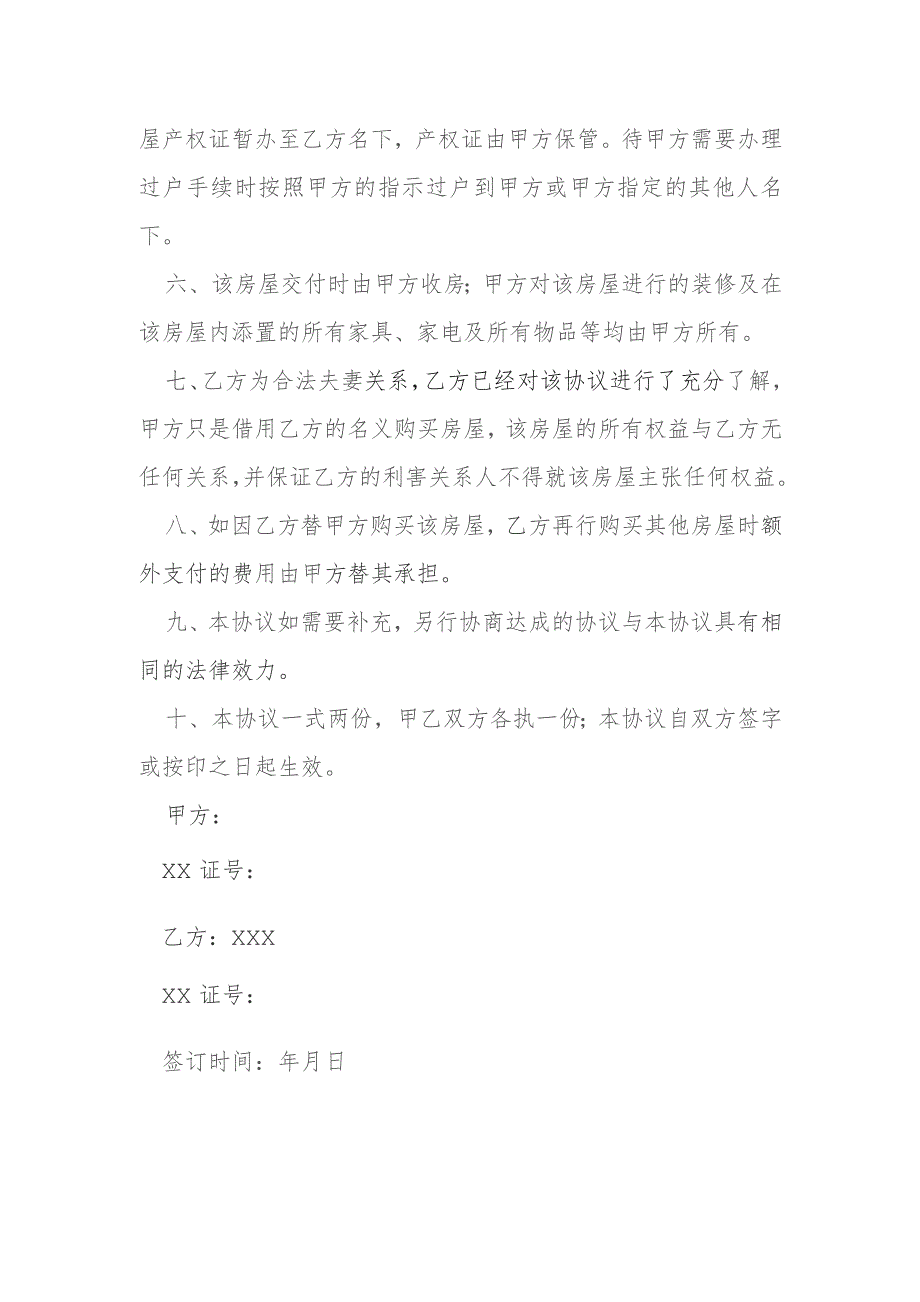 屋产权证暂办至乙方名下，产权证由甲方保管。待甲方需要办理
过户手续时按照甲方的指示过户到甲方或甲方指定的其他人名
下。
六、该房屋交付时由甲方收房；甲方对该房屋进行的装修及在
该房屋内添置的所有家具、家电及所有物品等均由甲方所有。
七、乙方为合法夫妻关系，乙方已经对该协议进行了充分了解，
甲方只是借用乙方的名义购买房屋，该房屋的所有权益与乙方无
任何关系，并保证乙方的利害关系人不得就该房屋主张任何权益。
八、如因乙方替甲方购买该房屋，乙方再行购买其他房屋时额
外支付的费用由甲方替其承担。
九、本协议如需要补充，另行协商达成的协议与本协议具有相
同的法律效力。
十、本协议一式两份，甲乙双方各执一份；本协议自双方签字
或按印之日起生效。
甲方：
XX 证号：
乙方：XXX
XX 证号：
签订时间：年月日